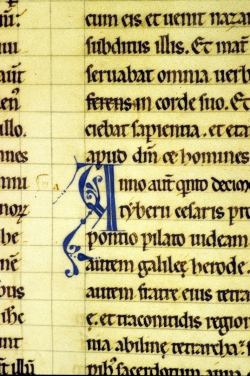 aūt
illo.
nnes
norꝝ
he
be
ihe
cum eis et uenit nazar
subditus illis. Et mat̄
seruabat omnia uerb
ferens in corde suo. Et
ciebat sapientia. et eta
apud dm̄ et homines
Anno aūt qnto decio
tyberii cesaris pro
pontio pilato iudeam
autem galileę herode.
autem fratre eius tetra
ę. et traconitidis region
ma abiline tetrarcha.
sacerdotum